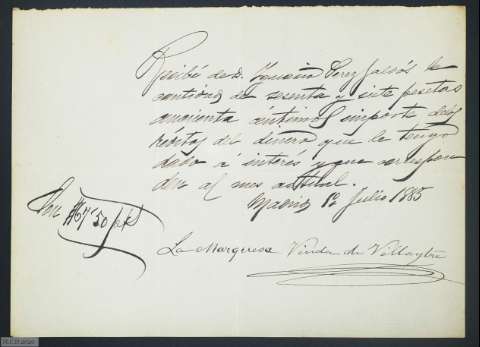 Recibí de D. Ignacio Perez Galdós la
cantidad de sesenta y siete pesetas
cincuenta céntimos importe de los
réditos del dinero que le tengo
dado a interés y que correspon
den al mes actual.
Madrid 1º Julio 1885
Son #67'50 pts
La Marquesa Viuda de Villaytre